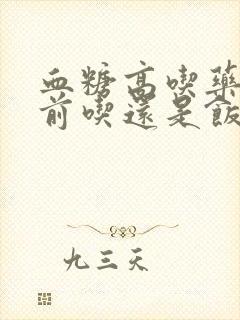 血糖高喫藥
前喫還是飯
九三天